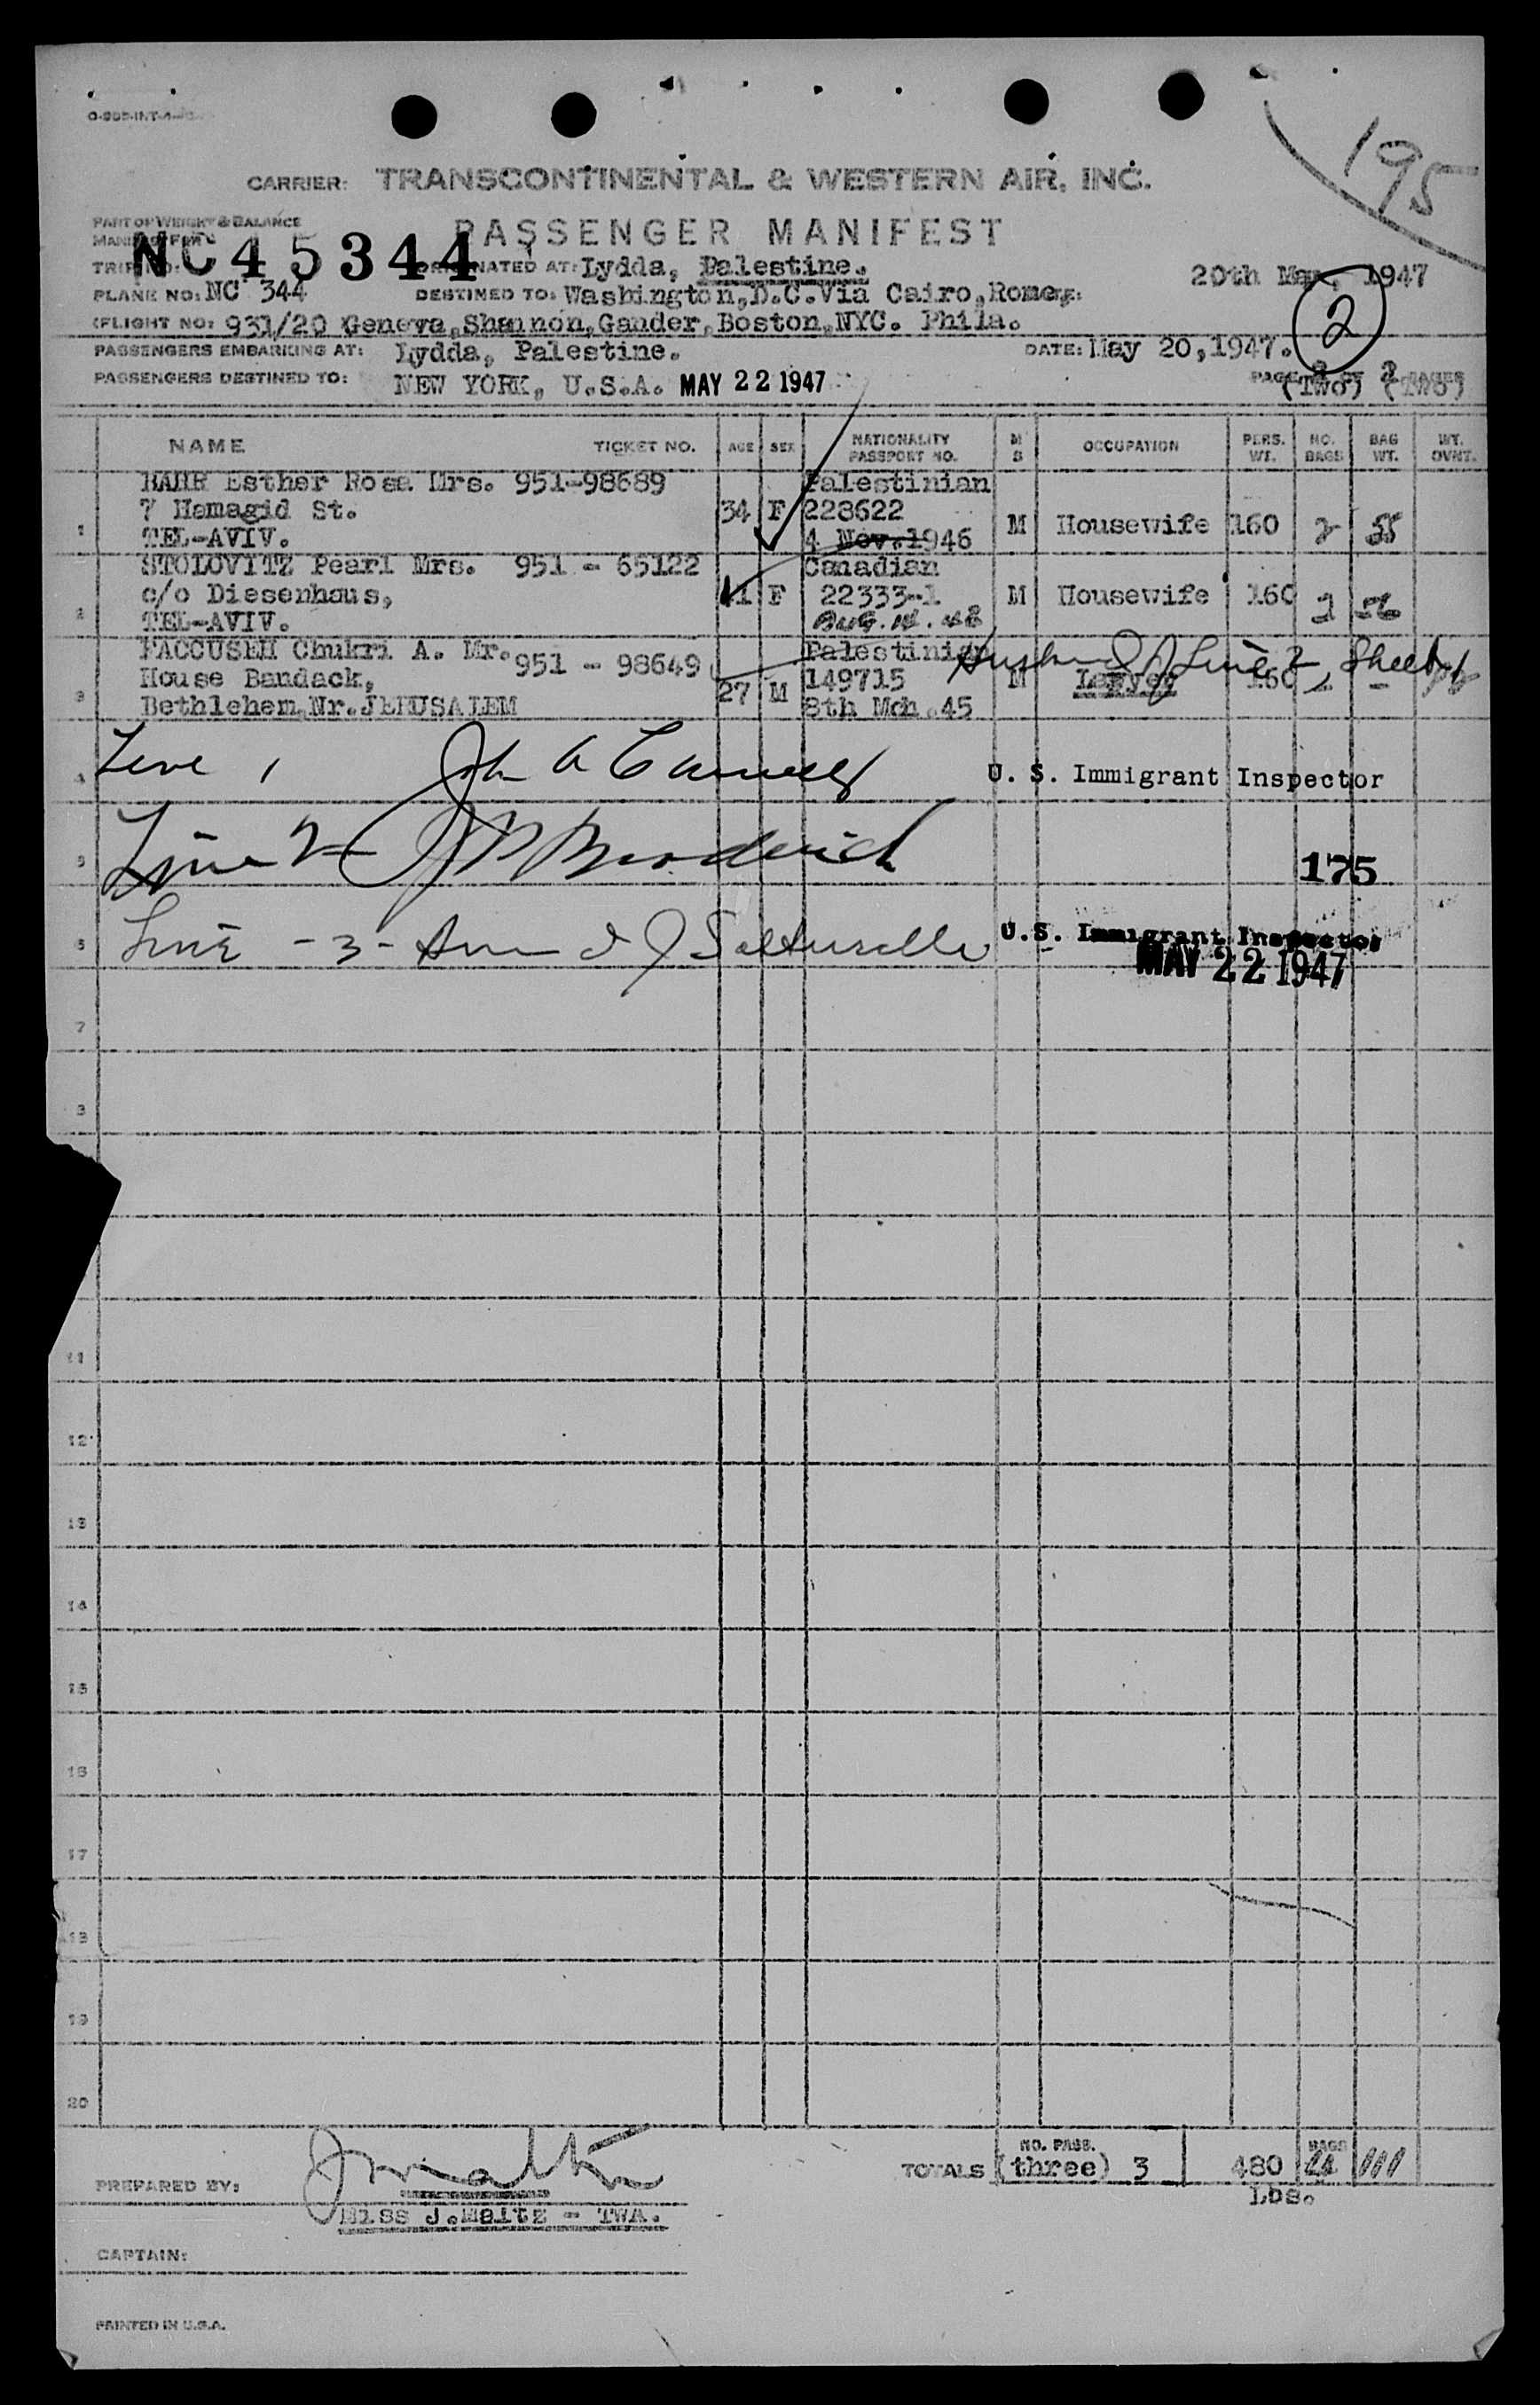 195
CARRIER: TRANSCONTINENTAL & WESTERN AIR, INC.
PART OF WEIGHT & BALANCE
PASSENGER MANIFEST
NC45344
ORIGINATED AT: Lydda, Palestine. 20th May, 1947
PLANE NO: NC 344 DESTINED TO: Washington,D.C.Via Cairo,Rome,
FLIGHT NO: 931/20 Geneva,Shannon,Gander,Boston,NYC. Phila.
2
PASSENGERS EMBARKING AT: Lydda, Palestine. DATE: May 20,1947.
PASSENGERS DESTINED TO: NEW YORK, U.S.A. MAY 22 1947 PAGE 2 OF 2 PAGES
(Two) (Two)
NAME TICKET NO. AGE SEX NATIONALITY PASSPORT NO. M S OCCUPATION PERS. WT. NO. BAGS BAG WT. WT. OVNT.
Esther Rosa Mrs. 951-98689 Palestinian
7 Hamagid St. 34 F 228622
1 TEL-AVIV. 4 Nov.1946 M Housewife 160 2 55
STOLOVITZ Pearl Mrs. 951 - 65122 Canadian
c/o Diesenhaus, 41 F 22333-1 M Housewife 160 2 56
2 TEL-AVIV. Aug. 14. 48
FACCUSEH Chukri A. Mr. 951 - 98649 Palestinian Husband of Line 2, Sheet 1
House Bandack, 149715 M Lawyer 160
3 Bethlehem,Nr.JERUSALEM 27 M 8th Mch.45
4 Line 1 John A U. S. Immigrant Inspector
5 Line 2
175
Line -3- U.S. Immigrant Inspector
MAY 22 1947
7
11
12
13
14
15
16
17
18
19
20
TOTALS NO. PASS. (three) 3 480 BAGS 111
Lbs.
PREPARED BY:
Miss J.Maltz - TWA.
CAPTAIN:
PRINTED IN U.S.A.